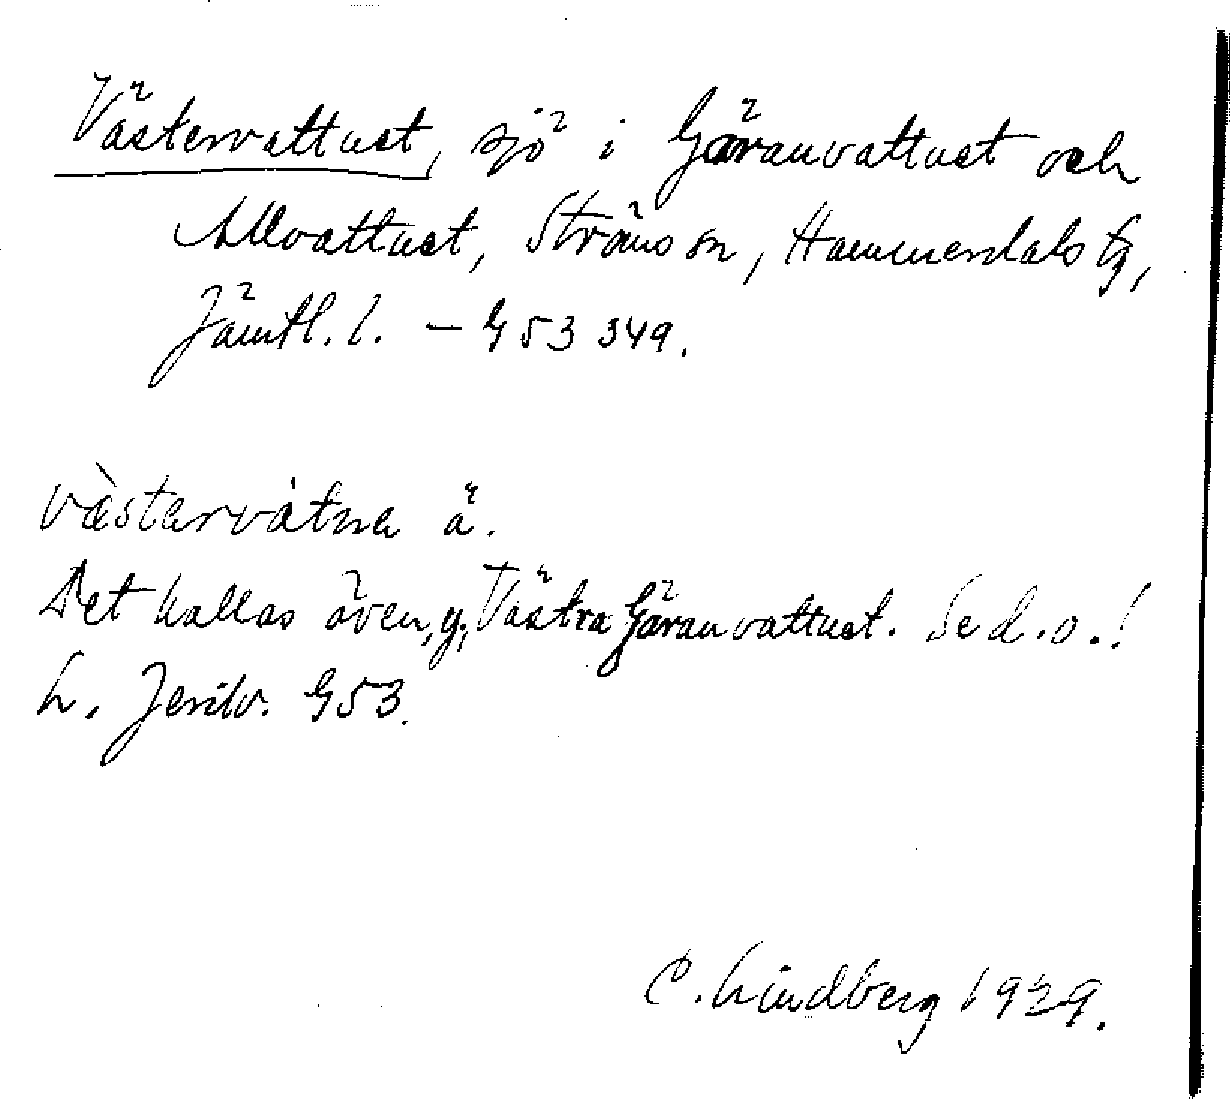 Västervattnet, sjö i Gäranvattnet och
Allvattnet, Ströms sn, Hammerdals tg,
Jämtl. l. – G 53 349.
västarvatna ä.
Det kallas även, g, Västra Gäranvattnet. Se d. o.!
L. Jenilv. G53.
C. Lindberg 1929.